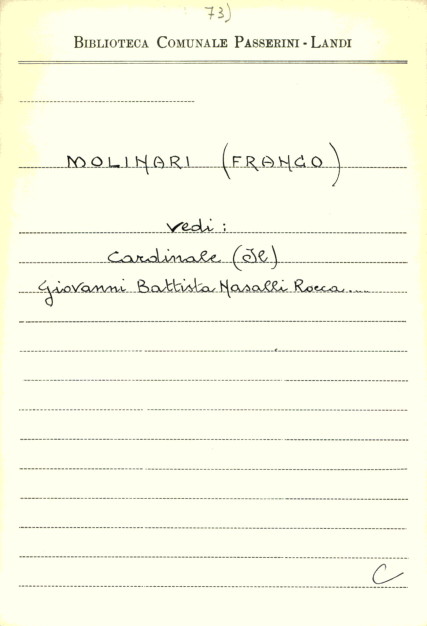 73)
BIBLIOTECA COMUNALE PASSERINI - LANDI
MOLINARI (FRANCO)
vedi :
Cardinale (Il)
Giovanni Battista Nasalli Rocca....
C